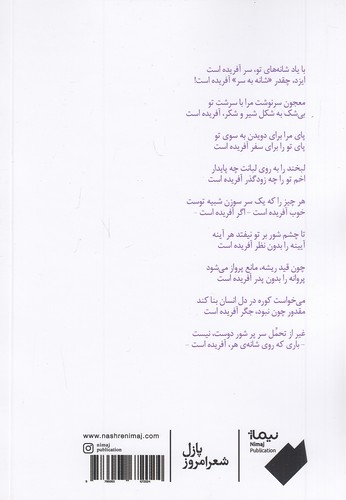 با یاد شانه‌های تو، سر آفریده است
ایزد، چقدر «شانه به سر» آفریده است!
معجون سرنوشت مرا با سرشت تو
بی‌شک به شکل شیر و شکر، آفریده است
پای مرا برای دویدن به سوی تو
پای تو را برای سفر آفریده است
لبخند را به روی لبانت چه پایدار
اخم تو را چه زودگذر آفریده است
هر چیز را که یک سر سوزن شبیه توست
خوب آفریده است - اگر آفریده است -
تا چشم شور بر تو نیفتد هر آینه
آیینه را بدون نظر آفریده است
چون قید ریشه، مانع پرواز می‌شود
پروانه را بدون پدر آفریده است
می‌خواست کوره در دل انسان بنا کند
مقدور چون نبود، جگر آفریده است
غیر از تحمّل سر پر شور دوست، نیست
- باری که روی شانه‌ی هر، آفریده است -
www.nashrenimaj.com
nimaj
publication
پازل
شعر امروز
نیماژ
Nimaj
Publication